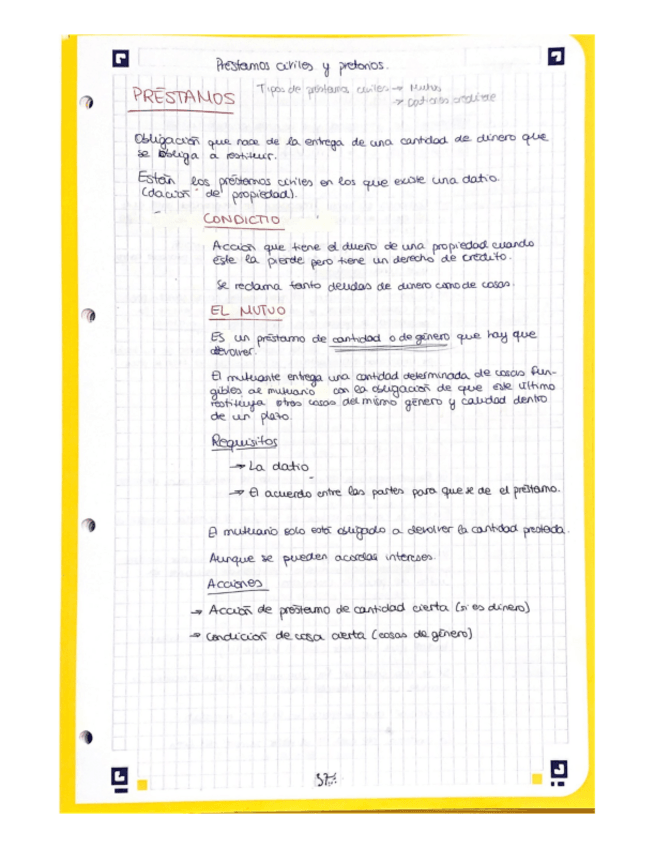 Préstamos civiles y pretorios.
PRÉSTAMOS
Tipos de préstamos civiles → Mutuo
→ 
Obligación que nace de la entrega de una cantidad de dinero que
se obliga a restituir.
Están los préstamos civiles en los que existe una datio.
(dación de propiedad).
CONDICTIO
Acción que tiene el dueño de una propiedad cuando
éste la pierde pero tiene un derecho de crédito.
Se reclama tanto deudas de dinero como de cosas.
EL MUTUO
Es un préstamo de cantidad o de género que hay que
devolver.
El mutuante entrega una cantidad determinada de cosas fun-
gibles al mutuario con la obligación de que este último
restituya otras cosas del mismo género y calidad dentro
de un plazo.
Requisitos
→ La datio
→ El acuerdo entre las partes para que se de el préstamo.
El mutuario solo está obligado a devolver la cantidad prestada.
Aunque se pueden acordar intereses.
Acciones
→ Acción de préstamo de cantidad cierta (si es dinero)
→ Condición de cosa cierta (cosas de género)
37